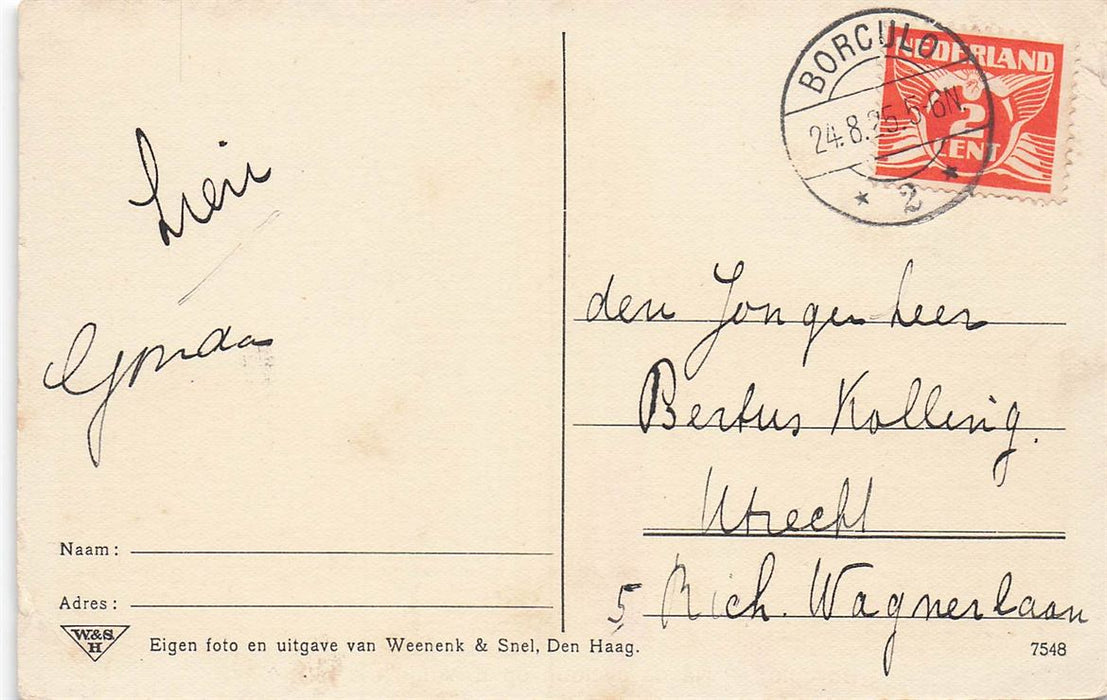 BORCULO
24.8.25.5-6N.
2
NEDERLAND
2
CENT
Lien
Gonda
den Jongen heer
Bertus Kolling.
Utrecht
5 Rich. Wagnerlaan
Naam:
Adres:
W.&S.
H
Eigen foto en uitgave van Weenenk & Snel, Den Haag.
7548